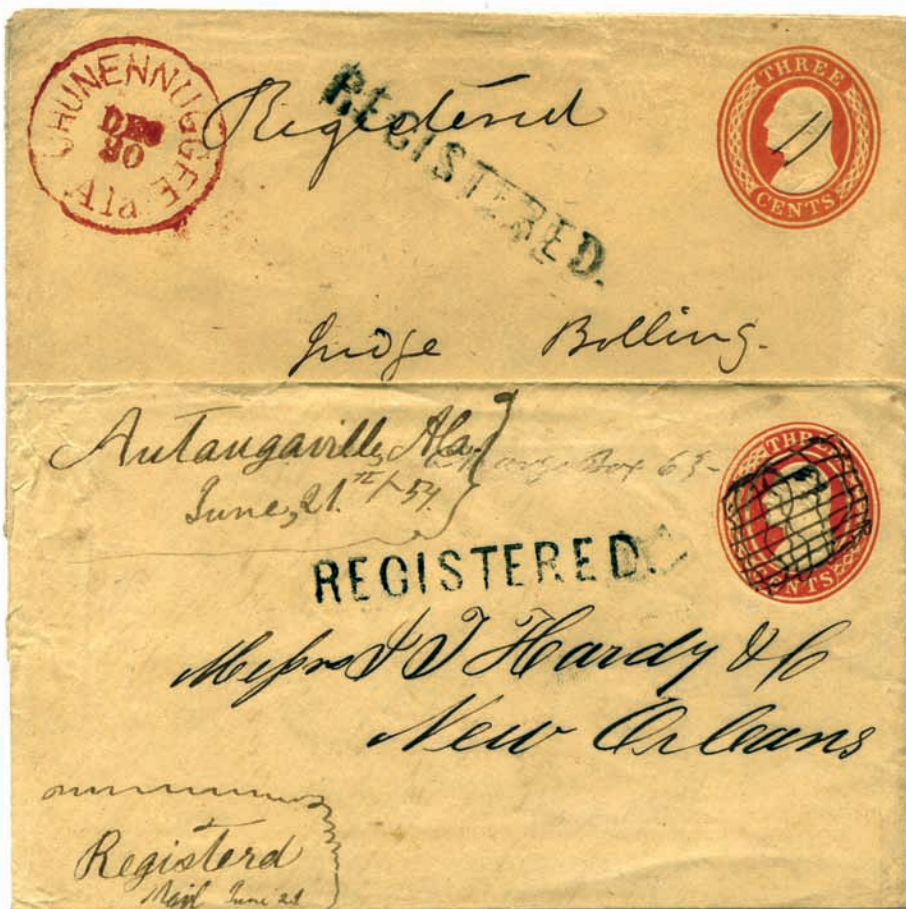 CHUNENNUGGEE Ala
DEC
30
Registered
REGISTERED.
THREE
CENTS
Judge Bolling.
Autaugaville, Ala.
Box 65-
June, 21.st/-54.
THREE
CENTS
REGISTERED.
Messrs J J Hardy & C
New Orleans
Registerd
Mail June 21